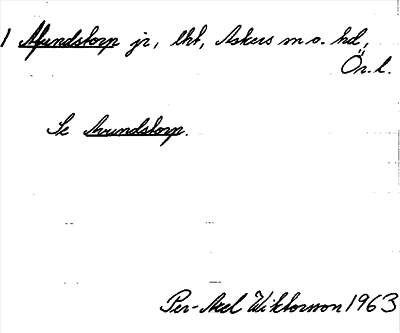 1 Afundstorp jr, lht, Askers sn o. hd,
Ön. l.
Se Avundstorp.
Per-Axel Wiktorsson 1963